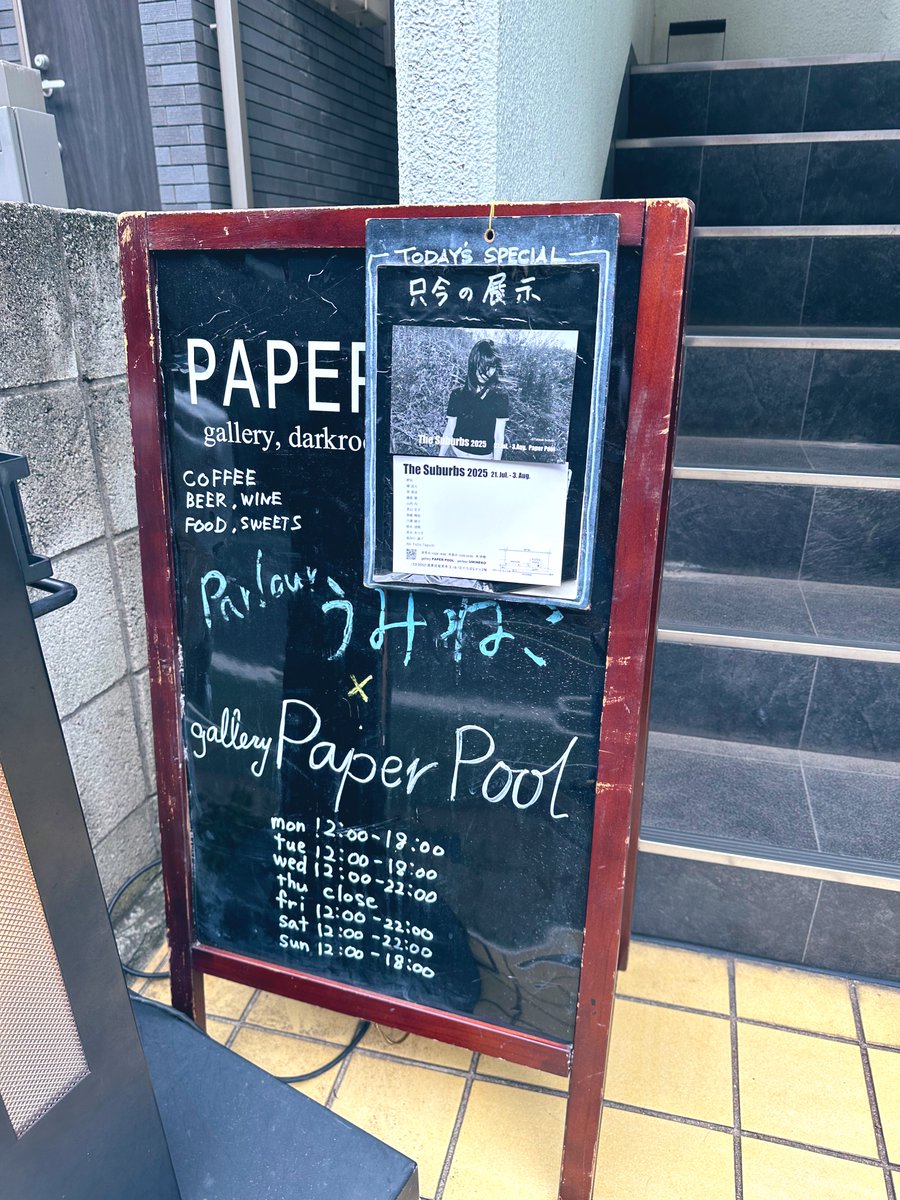 TODAY'S SPECIAL
只今の展示
The Suburbs 2025
Paper Pool
The Suburbs 2025 21. Jul. - 3. Aug.
PAPER
gallery, darkroo
COFFEE
BEER, WINE
FOOD, SWEETS
Parlour うみねこ
×
gallery Paper Pool
mon 12:00-18:00
tue 12:00-18:00
wed 12:00-22:00
thu close
fri 12:00-22:00
sat 12:00-22:00
sun 12:00-18:00